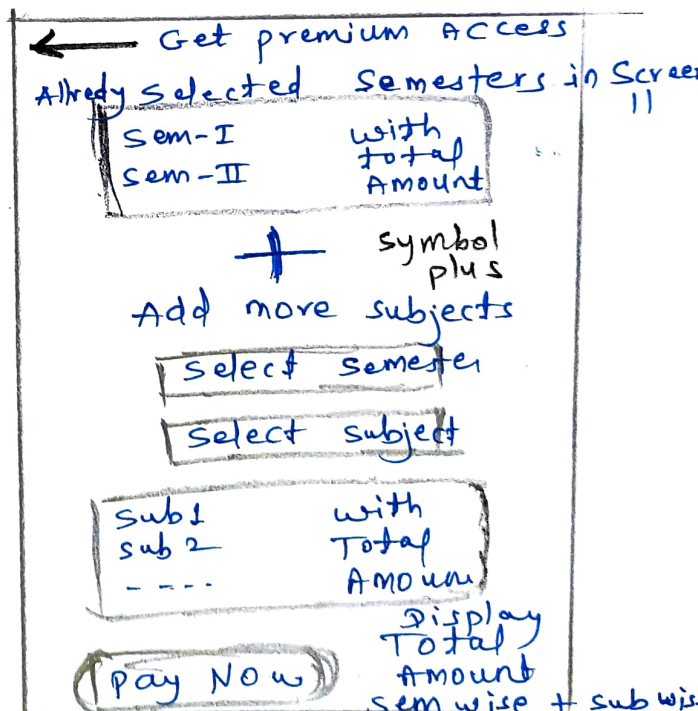 Get premium Access
Allredy Selected Semesters in Screen
11
Sem-I with
total
Sem-II Amount
+ symbol
plus
Add more subjects
Select Semester
Select Subject
Sub 1 with
Sub 2 Total
---- Amount
Display
Total
Pay Now Amount
Sem wise + sub wise